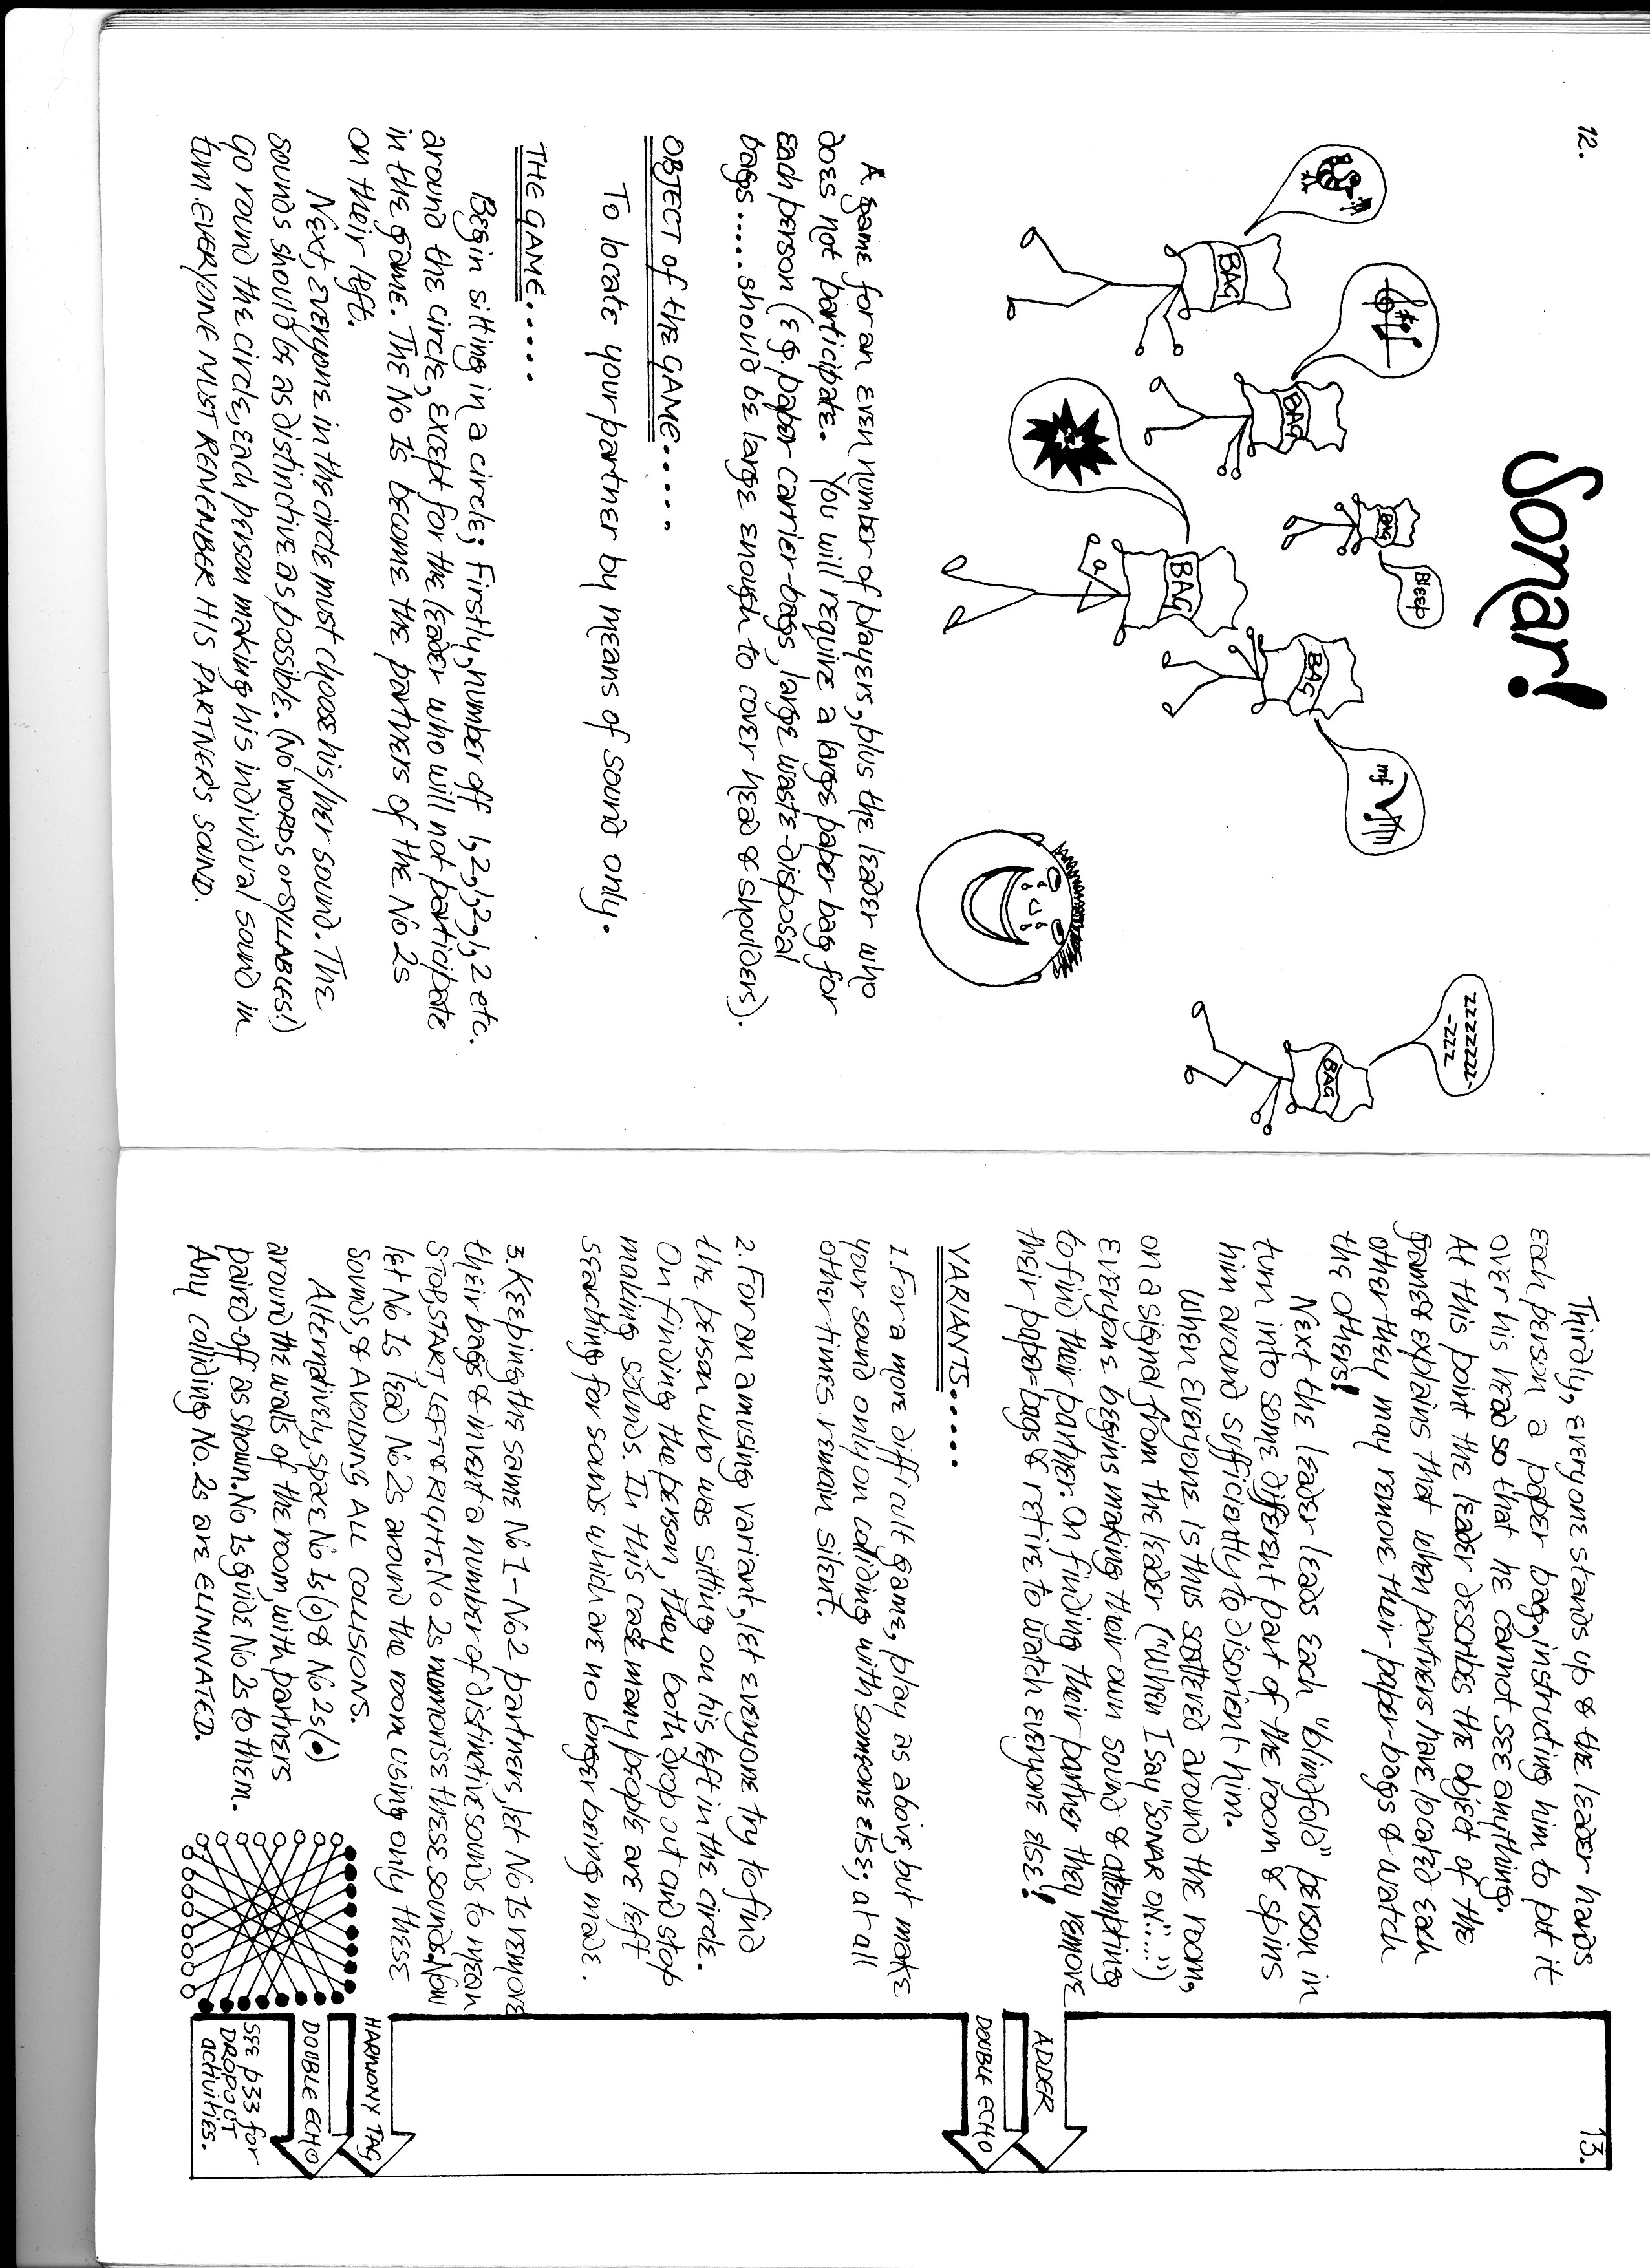 12.
Sonar!
BAG
BAG
BAG
Bleep
BAG
BAG
mf
zzzzzzzz-
-zzz
BAG
A game for an even number of players, plus the leader who
does not participate. You will require a large paper bag for
each person (eg. paper carrier-bags, large waste-disposal
bags..... should be large enough to cover head & shoulders).
OBJECT of the GAME.....
To locate your partner by means of sound only.
THE GAME.....
Begin sitting in a circle; Firstly, number off 1,2,1,2,1,2 etc.
around the circle, except for the leader who will not participate
in the game. The No 1s become the partners of the No 2s
on their left.
Next, everyone in the circle must choose his/her sound. The
sounds should be as distinctive as possible. (No words or SYLLABLES!)
Go round the circle, each person making his individual sound in
turn. EVERYONE MUST REMEMBER HIS PARTNER'S SOUND.
13.
Thirdly, everyone stands up & the leader hands
each person a paper bag, instructing him to put it
over his head so that he cannot see anything.
At this point the leader describes the object of the
game & explains that when partners have located each
other they may remove their paper-bags & watch
the others!
Next the leader leads each "blindfold" person in
turn into some different part of the room & spins
him around sufficiently to disorient him.
When everyone is thus scattered around the room,
on a signal from the leader ("When I say "SONAR ON"....")
Everyone begins making their own sound & attempting
to find their partner. On finding their partner they remove
their paper-bags & retire to watch everyone else!
VARIANTS.....
1. For a more difficult game, play as above, but make
your sound only on colliding with someone else; at all
other times remain silent.
2. For an amusing variant, let everyone try to find
the person who was sitting on his left in the circle.
On finding the person, they both drop out and stop
making sounds. In this case many people are left
seaching for sounds which are no longer being made.
3. Keeping the same No 1 - No 2 partners, let No 1s remove
their bags & invent a number of distinctive sounds to mean
STOP, START, LEFT & RIGHT. No 2s memorise these sounds. Now
let No 1s lead No 2s around the room using only these
sounds, & AVOIDING ALL COLLISIONS.
Alternatively, space No 1s (o) & No 2s (•)
around the walls of the room, with partners
paired-off as shown. No 1s guide No 2s to them.
Any colliding No. 2s are ELIMINATED.
ADDER
DOUBLE ECHO
HARMONY TAG
DOUBLE ECHO
SEE p33 for
DROPOUT
activities.